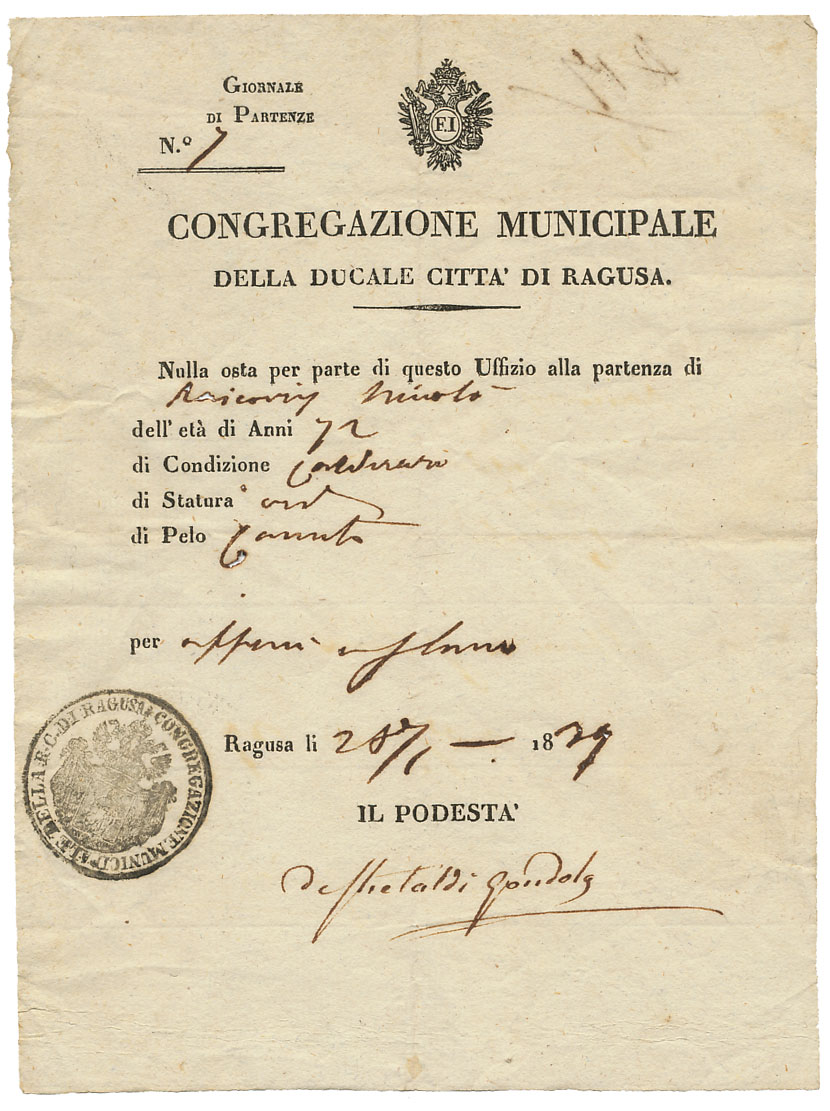 GIORNALE
DI PARTENZE
N.º 7
F.I
CONGREGAZIONE MUNICIPALE
DELLA DUCALE CITTA' DI RAGUSA.
Nulla osta per parte di questo Uffizio alla partenza di
Nicolò
dell'età di Anni 72
di Condizione
di Statura ord
di Pelo Canuto
per affari
Ragusa li 28/1 — 1839
IL PODESTA'
de Ghetaldi Gondola
CONGREGAZIONE MUNICIPALE DELLA R. C. DI RAGUSA